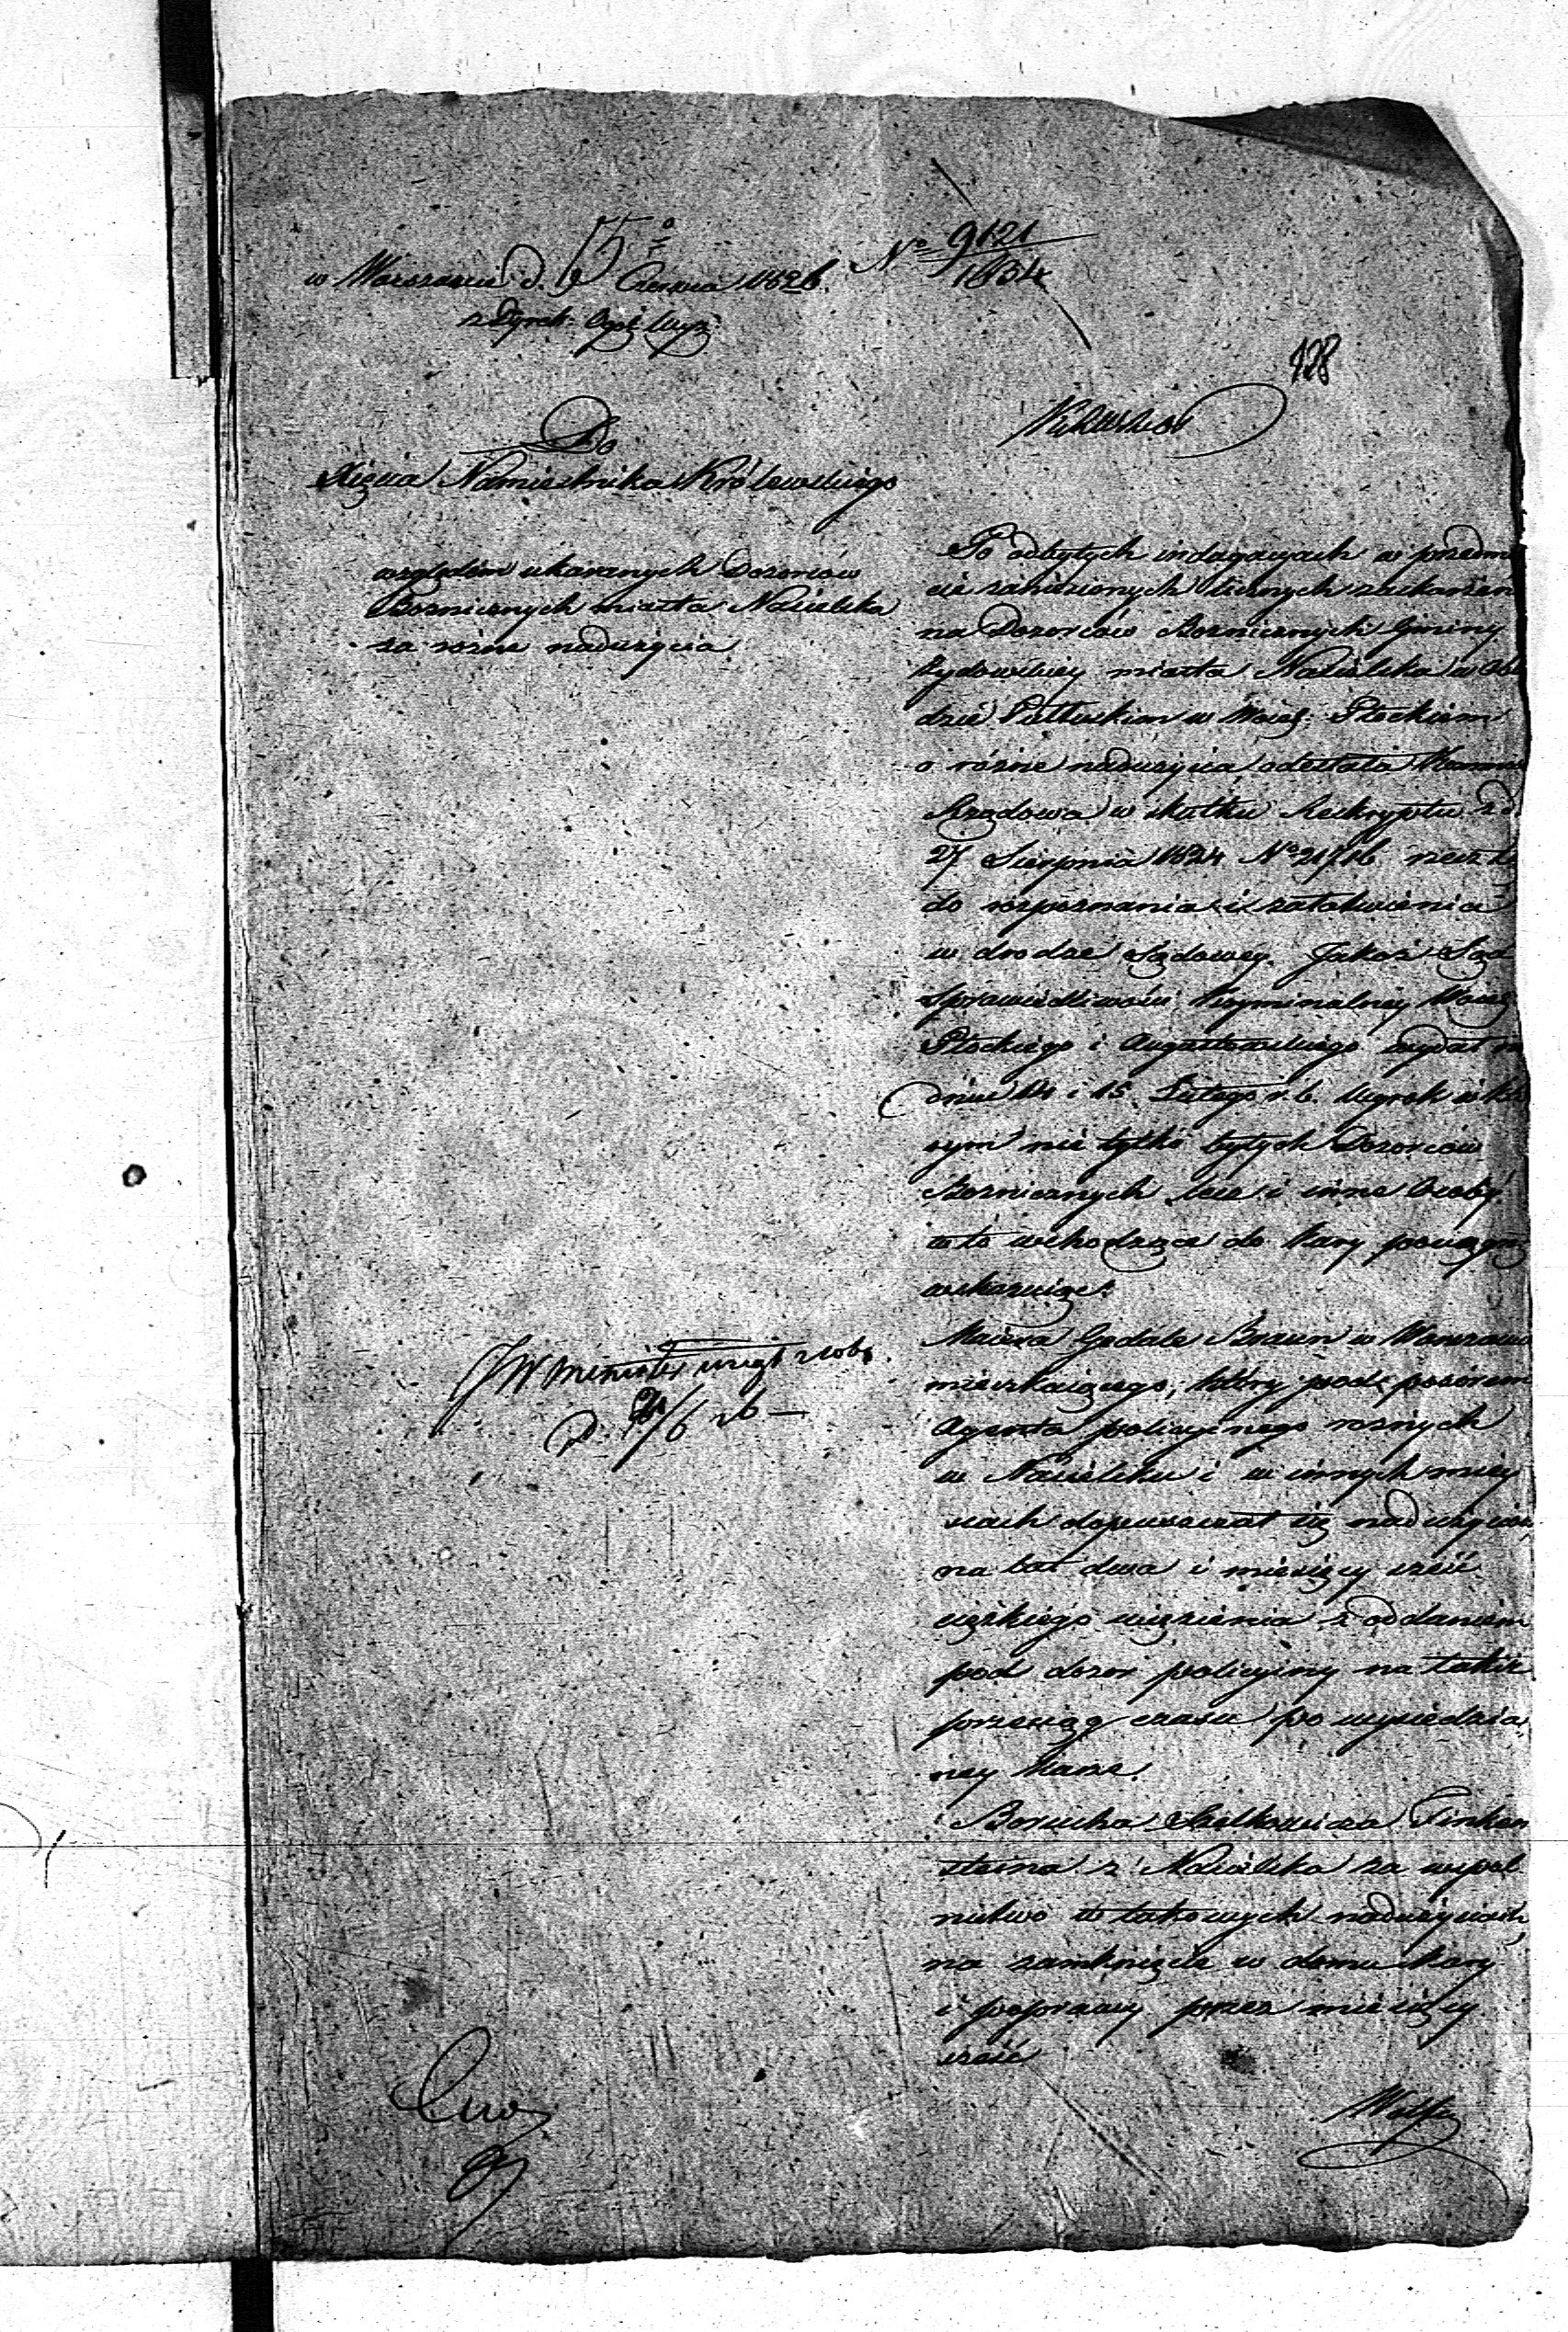 w Warszawie d. 15 Czerwca 1826.
No 9121/1834
z Dyrek: Ogól: Wyz:
128
Do
Xięcia Namiestnika Królewskiego
względem ukaranych Dozorców
Boznicznych miasta Nasielska
za rożne nadużycia
Po odbytych indagacyach w przedm
cie zaniesionych licznych zaskarżen
na Dozorców Boznicznych Gminy
żydowskiey miasta Nasielska w Obw
dzie Pułtuskim w Woiew: Płockiem
o różne nadużycia, odesłała Kommis
Rządowa w skutku Reskryptu z d.
27 Sierpnia 1824 No 21716 rzecz tę
do rozpoznania i załatwienia
w drodze Sądowey. Jakoż Sąd
Sprawiedliwości Kryminalney Woiew:
Płockiego i Augustowskiego wydał w
dniu 14 i 15 Lutego r. b. Wyrok w któ
rym nie tylko byłych Dozorców
Boznicznych lecz i inne Osoby
w to wchodzące do Kary pociągnął
wskazuiąc:
Maiera Gedale Braun w Warszawie
mieszkaiącego, który pod pozorem
Agenta policyinego roznych
w Nasielsku i w innych miey
scach dopuszczał się nadużyciów,
na lat dwa i miesięcy sześć
cięzkiego więzienia z oddaniem
pod dozor policyiny na takiż
przeciąg czasu po wysiedzia
ney karze.
Borucha Szelkowicza Finken
steina z Nasielska za wspól
nictwo w takowych nadużyciach,
na zamknięcie w domu Kary
i poprawy przez miesięcy
sześć
JW Minister wziął z sobą
D. 6 26